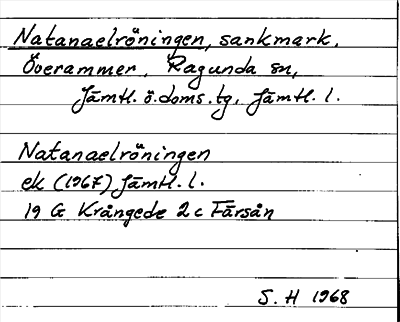 Natanaelröningen, sankmark,
Överammer, Ragunda sn,
Jämtl. ö. doms. tg, Jämtl. l.
Natanaelröningen
ek (1967) Jämtl. l.
19 G Krångede 2 c Färsån
S. H 1968